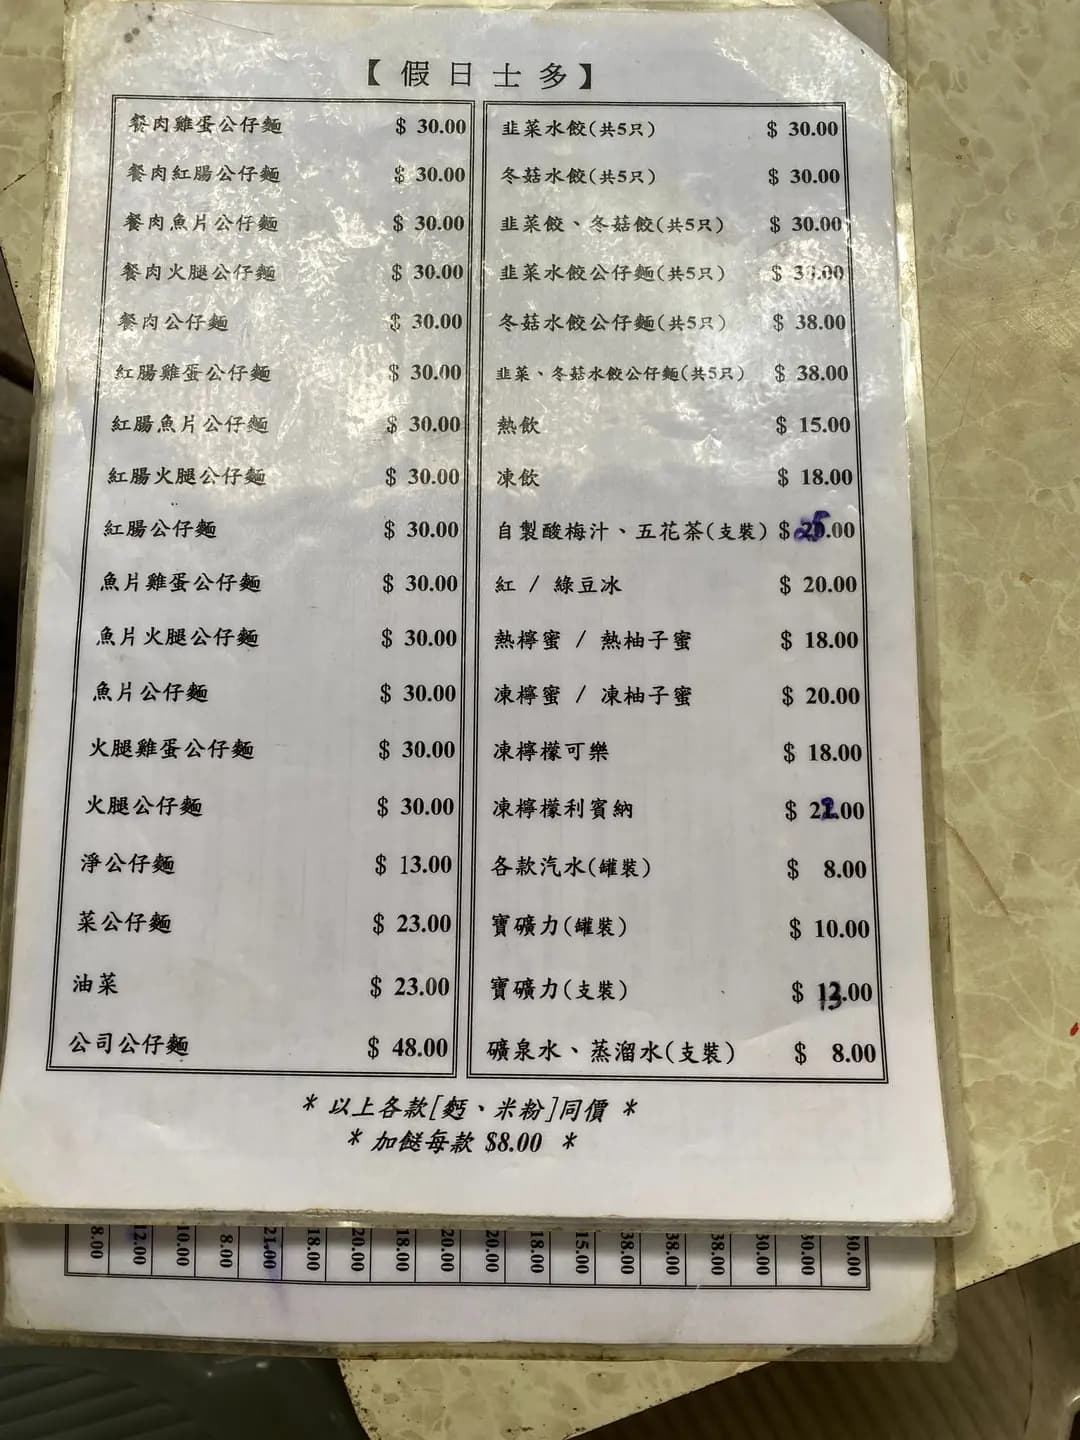 【假日士多】
餐肉雞蛋公仔麵 $ 30.00
餐肉紅腸公仔麵 $ 30.00
餐肉魚片公仔麵 $ 30.00
餐肉火腿公仔麵 $ 30.00
餐肉公仔麵 $ 30.00
紅腸雞蛋公仔麵 $ 30.00
紅腸魚片公仔麵 $ 30.00
紅腸火腿公仔麵 $ 30.00
紅腸公仔麵 $ 30.00
魚片雞蛋公仔麵 $ 30.00
魚片火腿公仔麵 $ 30.00
魚片公仔麵 $ 30.00
火腿雞蛋公仔麵 $ 30.00
火腿公仔麵 $ 30.00
淨公仔麵 $ 13.00
菜公仔麵 $ 23.00
油菜 $ 23.00
公司公仔麵 $ 48.00
韭菜水餃(共5只) $ 30.00
冬菇水餃(共5只) $ 30.00
韭菜餃、冬菇餃(共5只) $ 30.00
韭菜水餃公仔麵(共5只) $
冬菇水餃公仔麵(共5只) $ 38.00
韭菜、冬菇水餃公仔麵(共5只) $ 38.00
熱飲 $ 15.00
凍飲 $ 18.00
自製酸梅汁、五花茶(支裝) $ 25.00
紅 / 綠豆冰 $ 20.00
熱檸蜜 / 熱柚子蜜 $ 18.00
凍檸蜜 / 凍柚子蜜 $ 20.00
凍檸檬可樂 $ 18.00
凍檸檬利賓納 $ 22.00
各款汽水(罐裝) $ 8.00
寶礦力(罐裝) $ 10.00
寶礦力(支裝) $ 13.00
礦泉水、蒸溜水(支裝) $ 8.00
* 以上各款[麪、米粉]同價 *
* 加餸每款 $8.00 *
8.00
12.00
10.00
8.00
21.00
18.00
20.00
18.00
20.00
20.00
18.00
15.00
38.00
38.00
38.00
30.00
30.00
30.00